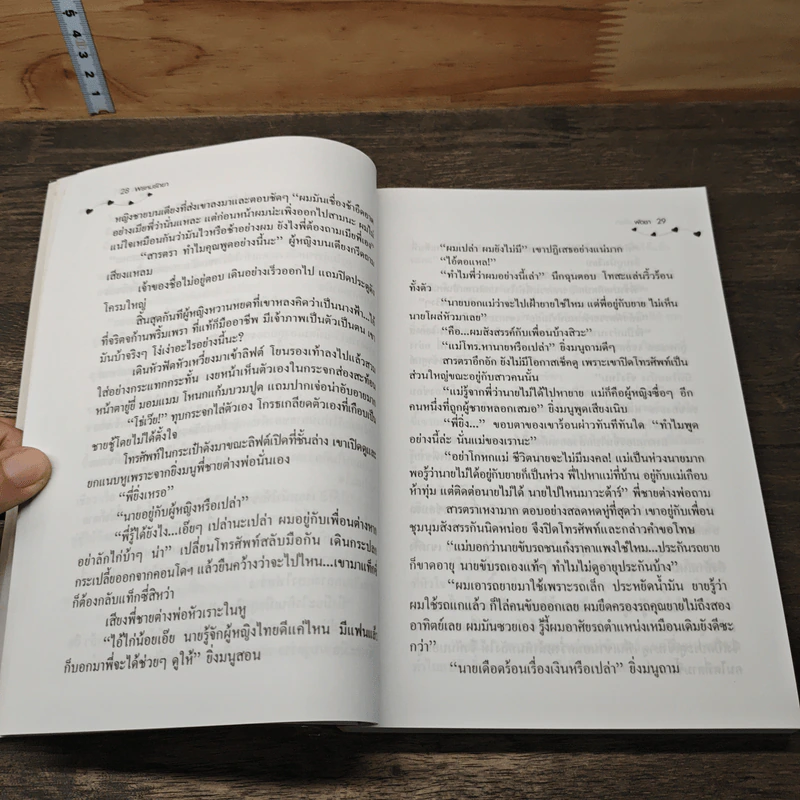 5
4
3
2
1
28 พรหมรักษา
หญิงชายบนเตียงที่ส่งเขาลงมาและตอบชัดๆ “ผมมันเชื่องช้ายืดยาด
อย่างเมียพี่ว่านั่นแหละ แต่ก่อนหน้าผมน่ะเพิ่งออกไปสามนะ ผมไม่
แน่ใจเหมือนกันว่ามันไวหรือช้าอย่างผม ยังไงพี่ต้องถามเมียพี่เอง”
“สารตรา ทำไมคุณพูดอย่างนี้นะ” ผู้หญิงบนเตียงกรีดถาม
เสียงแหลม
เจ้าของชื่อไม่อยู่ตอบ เดินอย่างเร็วออกไป แถมปิดประตูดัง
โครมใหญ่
สิ้นสุดกันทีผู้หญิงหวานหยดที่เขาหลงคิดว่าเป็นนางฟ้า...
ที่จริตจก้านพริ้มเพรา ที่แท้ก็มืออาชีพ มีเจ้าภาพเป็นตัวเป็นตน
มันบ้าจริงๆ โง่เง่าอะไรอย่างนี้นะ?
เดินหัวฟัดหัวเหวี่ยงมาเข้าลิฟต์ โยนรองเท้าลงไปแล้วสวม
ใส่อย่างกระแทกกระทั้น เงยหน้าเห็นตัวเองในกระจกส่องสะท้อน
หน้าตายู่ยี่ มอมแมม โหนกแก้มบวมปูด แถมปากเจ่อน่าอับอายมาก
“โธ่เว๊ย!” ทุบกระจกใส่ตัวเอง โกรธเกลียดตัวเองที่เกือบเป็น
ชายชู้โดยไม่ได้ตั้งใจ
โทรศัพท์ในกระเป๋าดังมาขณะลิฟต์เปิดที่ชั้นล่าง เขาเปิดดูและ
ยกแนบหูเพราะจากยิ่งมนูพี่ชายต่างพ่อนั่นเอง
“พี่ยิ่งเหรอ”
“นายอยู่กับผู้หญิงหรือเปล่า”
“พี่รู้ได้ยังไง...เอ๊ยๆ เปล่านะเปล่า ผมอยู่กับเพื่อนต่างหาก
อย่าลักไก่บ้าๆ น่า” เปลี่ยนโทรศัพท์สลับมือกัน เดินกระปลก
กระเปลี้ยออกจากคอนโดฯ แล้วยืนคว้างว่าจะไปไหน...เขามาแท็กซี่
ก็ต้องกลับแท็กซี่สิหว่า
เสียงพี่ชายต่างพ่อหัวเราะในหู
“ไอ้ไก่น้อยเอ๊ย นายรู้จักผู้หญิงไทยดีแค่ไหน มีแฟนแล้ว
ก็บอกมาพี่จะได้ช่วยๆ ดูให้” ยิ่งมนูสอน
29
“ผมเปล่า ผมยังไม่มี” เขาปฏิเสธอย่างแน่มาก
“ไอ้ตอแหล!”
“ทำไมพี่ว่าผมอย่างนี้เล่า” นึกฉุนตอบ โทสะแล่นริ้วร้อน
ทั้งตัว
“นายบอกแม่ว่าจะไปเฝ้ายายใช่ไหม แต่พี่อยู่กับยาย ไม่เห็น
นายโผล่หัวมาเลย”
“คือ...ผมสังสรรค์กับเพื่อนบ้างสิวะ”
“แม่โทร.หานายหรือเปล่า” ยิ่งมนูถามดีๆ
สารตราอึกอัก ยังไม่มีโอกาสเช็คดู เพราะเขาปิดโทรศัพท์เป็น
ส่วนใหญ่ขณะอยู่กับสาวคนนั้น
“แม่รู้จากพี่ว่านายไม่ได้ไปหายาย แม่ก็คือผู้หญิงซื่อๆ อีก
คนหนึ่งที่ถูกผู้ชายหลอกเสมอ” ยิ่งมนูพูดเสียงเนิบ
“พี่ยิ่ง...” ขอบตาของเขาร้อนผ่าวทันทีทันใด “ทำไมพูด
อย่างนี้ล่ะ นั่นแม่ของเรานะ”
“อย่าโกหกแม่ ชีวิตนายจะไม่มีมงคล! แม่เป็นห่วงนายมาก
พอรู้ว่านายไม่ได้อยู่กับยายก็เป็นห่วง พี่ไปหาแม่ที่บ้าน อยู่กับแม่เกือบ
ห้าทุ่ม แต่ติดต่อนายไม่ได้ นายไปไหนมาวะต้าร์” พี่ชายต่างพ่อถาม
สารตราเหงามาก ตอบอย่างสลดหดหู่ที่สุดว่า เขาอยู่กับเพื่อน
ชุมนุมสังสรรกันนิดหน่อย จึงปิดโทรศัพท์และกล่าวคำขอโทษ
“แม่บอกว่านายขับรถชนเก๋งราคาแพงใช่ไหม...ประกันรถยาย
ก็ขาดอายุ นายขับรถเองแท้ๆ ทำไมไม่ดูอายุประกันบ้าง”
“ผมเอารถยายมาใช้เพราะรถเล็ก ประหยัดน้ำมัน ยายรู้ว่า
ผมใช้รถแกแล้ว ก็ไล่คนขับออกเลย ผมยึดครองรถคุณยายไม่ถึงสอง
อาทิตย์เลย ผมมันซวยเอง รู้งี้ผมอาศัยรถตำแหน่งเหมือนเดิมยังดีซะ
กว่า”
“นายเดือดร้อนเรื่องเงินหรือเปล่า” ยิ่งมนูถาม